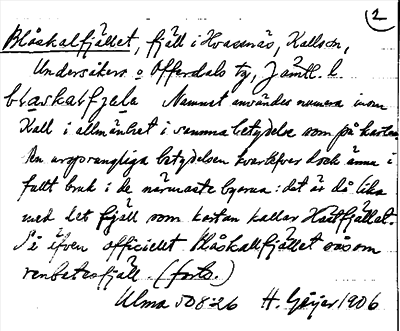 1
Blåskalfjället, fjäll i Kallsnäs, Kallsön,
Undersåkers o Offerdals tg, Jämtl. l.
blaskalfjela Namnet användes numera inom
Kall i allmänhet i samma betydelse som på kartan.
Den ursprungliga betydelsen kvarlefver dock ännu i
fullt bruk i de närmaste byarna: det är då lika
med det fjäll som kartan kallar Hastfjället.
Så äfven officiellt Blåskalfjället såsom
renbetesfjäll. (forts.)
Ulma 508:26 H. Geijer 1906